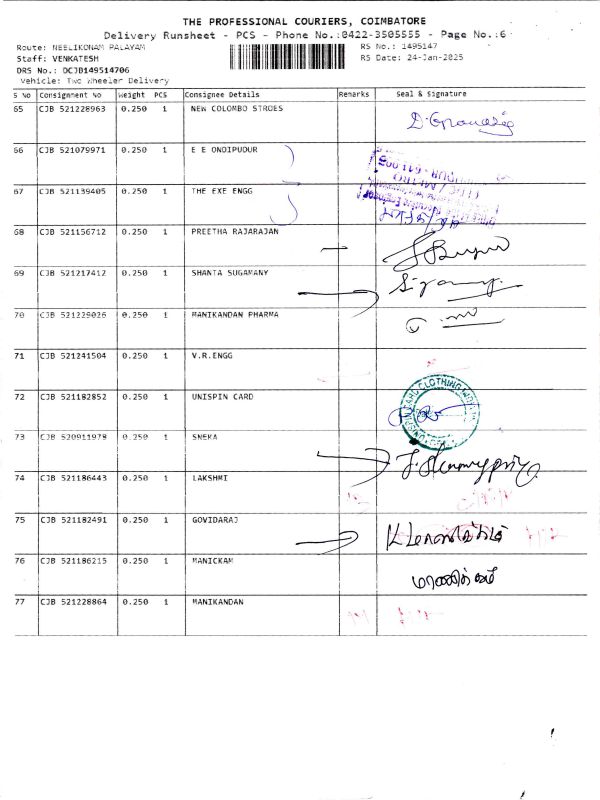 THE PROFESSIONAL COURIERS, COIMBATORE
Delivery Runsheet - PCS - Phone No.:0422-3505555 - Page No.:6
Route: NEELIKONAM PALAYAM
RS No.: 1495147
Staff: VENKATESH
RS Date: 24-Jan-2025
DRS No.: DCJB149514706
Vehicle: Two Wheeler Delivery
S No Consignment No Weight PCS Consignee Details Remarks Seal & Signature
65 CJB 521228963 0.250 1 NEW COLOMBO STROES
66 CJB 521079971 0.250 1 E E ONDIPUDUR
67 CJB 521139405 0.250 1 THE EXE ENGG
68 CJB 521156712 0.250 1 PREETHA RAJARAJAN
69 CJB 521217412 0.250 1 SHANTA SUGAMANY
70 CJB 521229026 0.250 1 MANIKANDAN PHARMA
71 CJB 521241504 0.250 1 V.R.ENGG
72 CJB 521182852 0.250 1 UNISPIN CARD
73 CJB 520911978 0.250 1 SNEKA
74 CJB 521186443 0.250 1 LAKSHMI
75 CJB 521182491 0.250 1 GOVIDARAJ
76 CJB 521186215 0.250 1 MANICKAM
மாணிக்கம்
77 CJB 521228864 0.250 1 MANIKANDAN